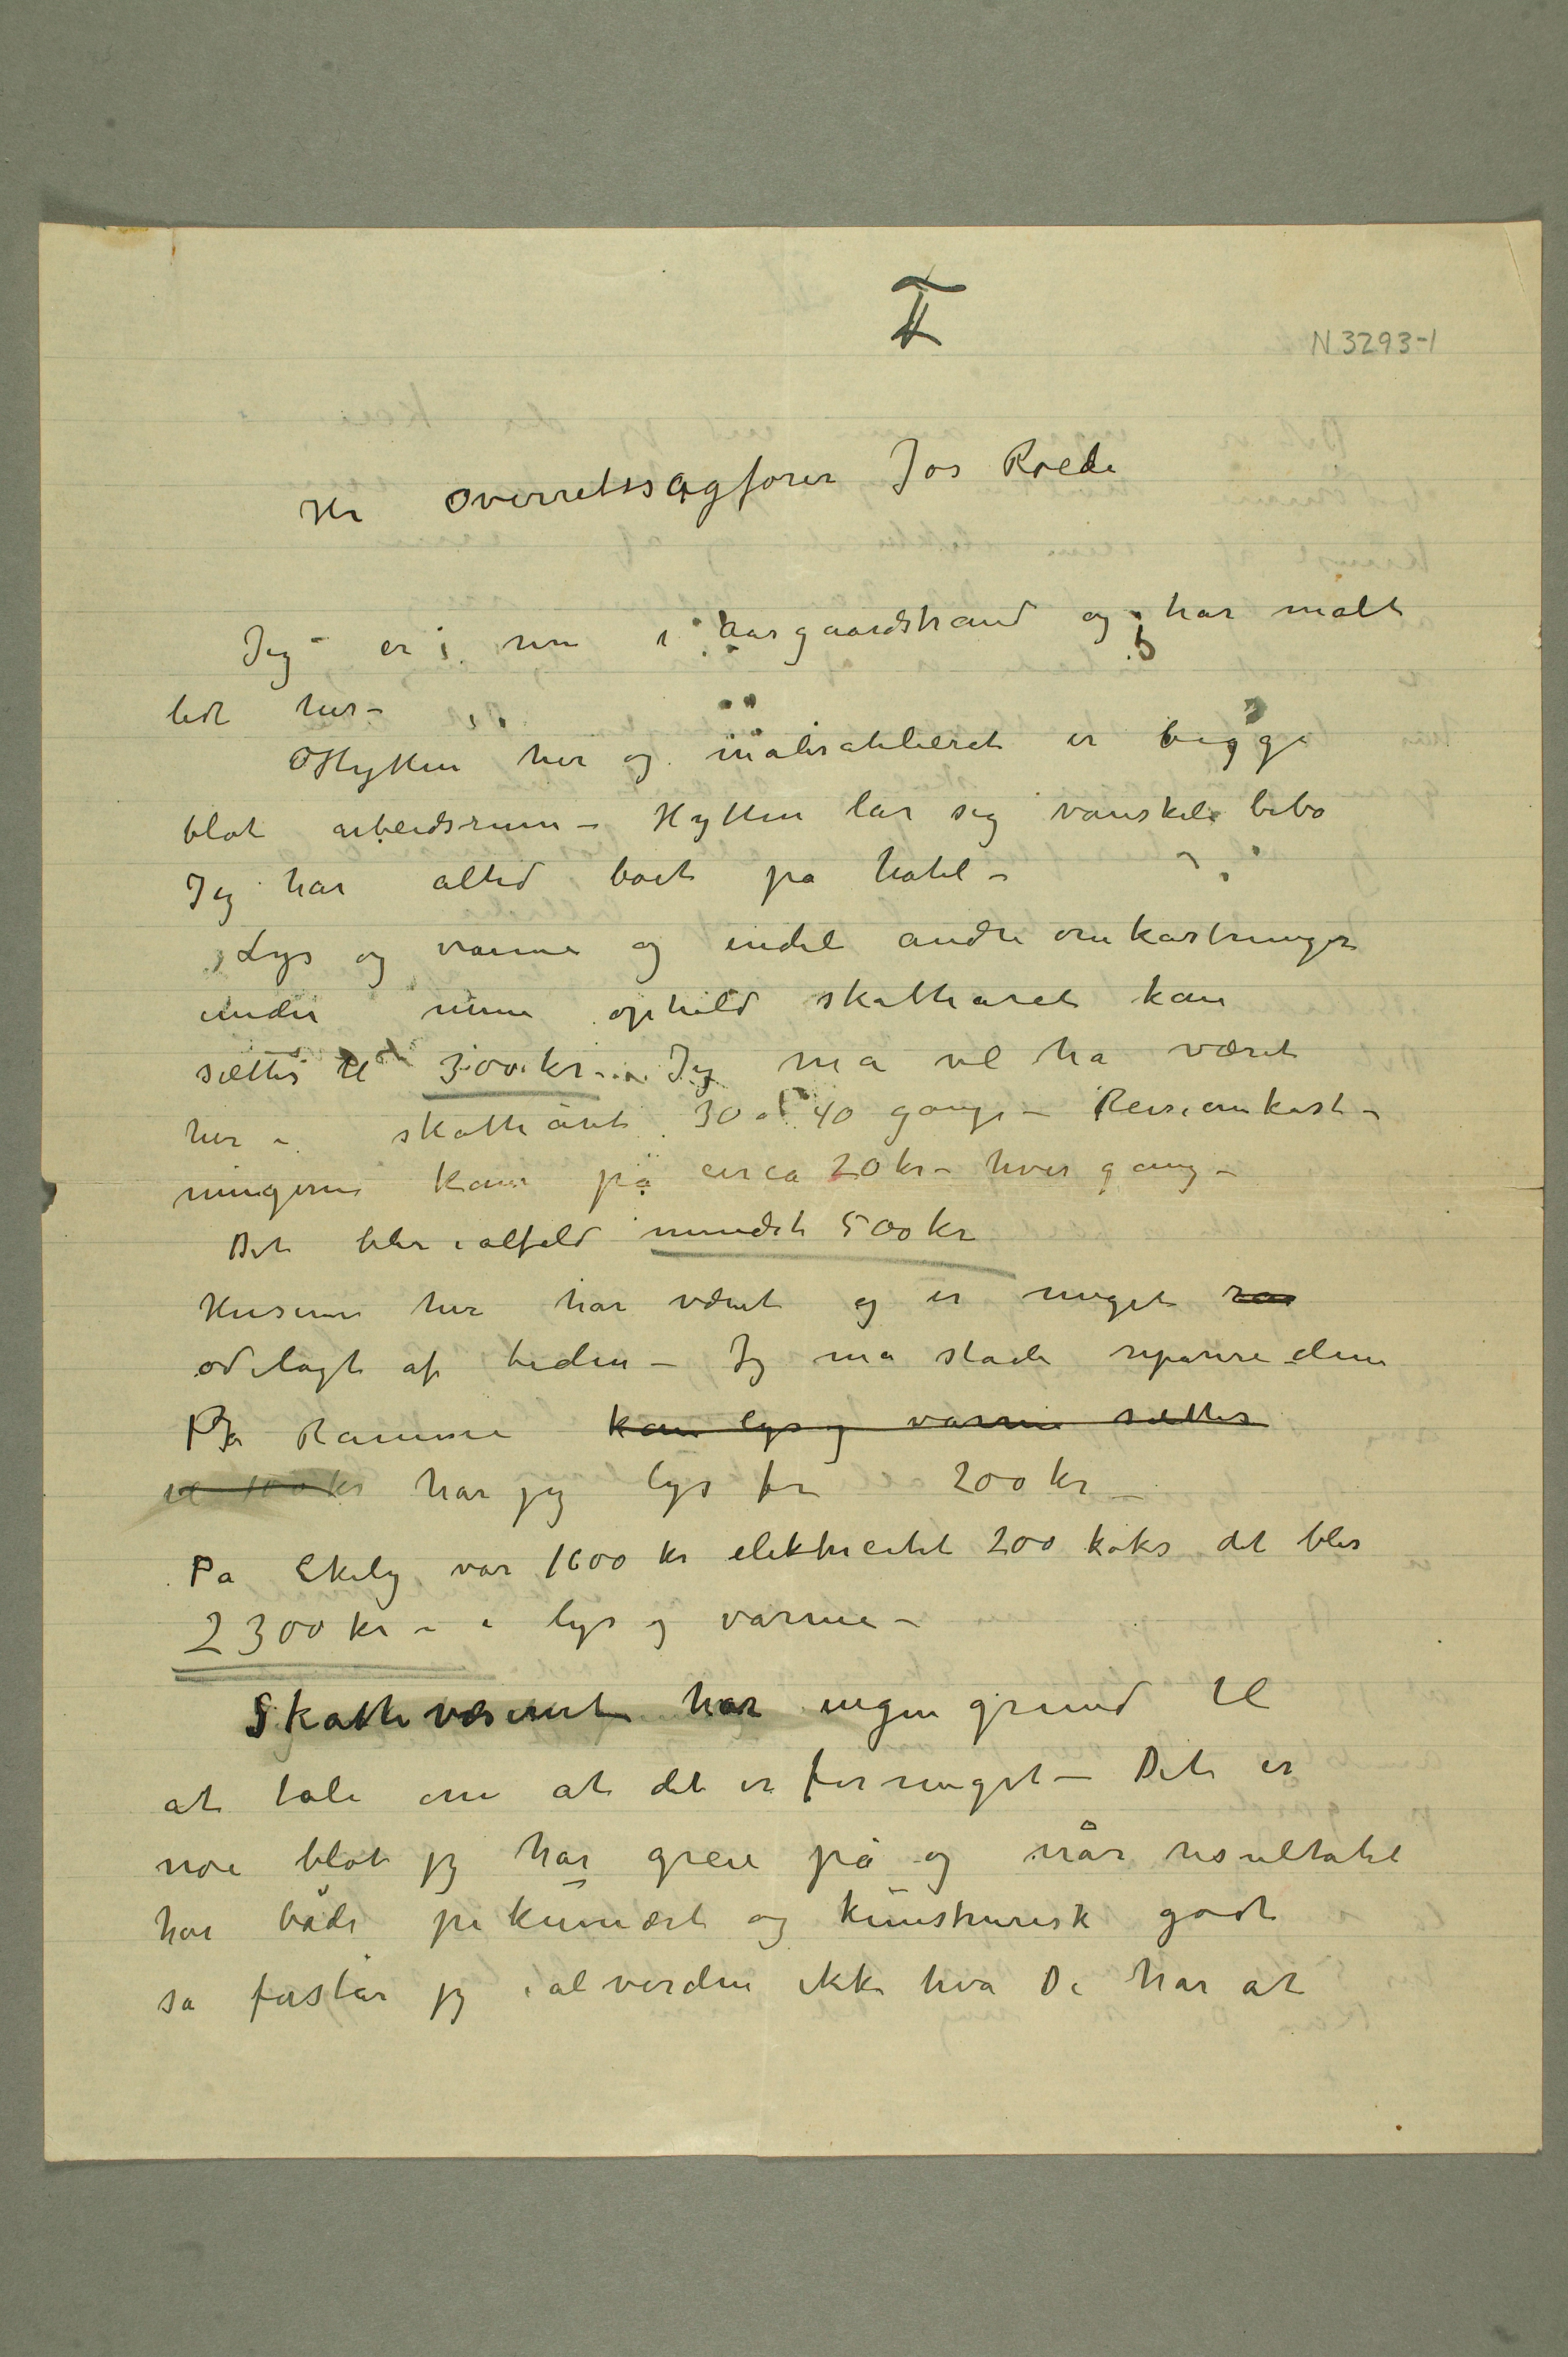 II
N 3293-1
Hr Overretssagfører Jos Roede
Jeg er nu i Aasgaardstrand og har malt
lidt her –
Hytten her og malerateliéret er begge
blot arbeidsrum – Hytten lar sig vanskeli bebo
Jeg har altid boet på hotel –
Lys og varme og endel andre omkostninger
under mine ophold skatteåret kan
sættes til 300 kr. Jeg må vel ha været
her i skatteåret 30 a 40 gange – Reiseomkost-
ningerne kom på circa 20 kr – hver gang –
Det blir ialfald mindst 500 kr
Husene her har været og er meget ra
ødelagt af tiden – Jeg må stadi reparere dem
På Ramme kan lys og varme sættes
til 100 kr har jeg lys for 200 kr –
På Ekely var 1600 kr elektricitet 200 koks det blir
2300 kr – i lys og varme –
Skattevæsenet har ingen grund til
at tale om at det er for meget – Det er
noe blot jeg har greie på og når resultatet
har både pekuniært og kunstnerisk godt
så forstår jeg i alverden ikke hva De har at